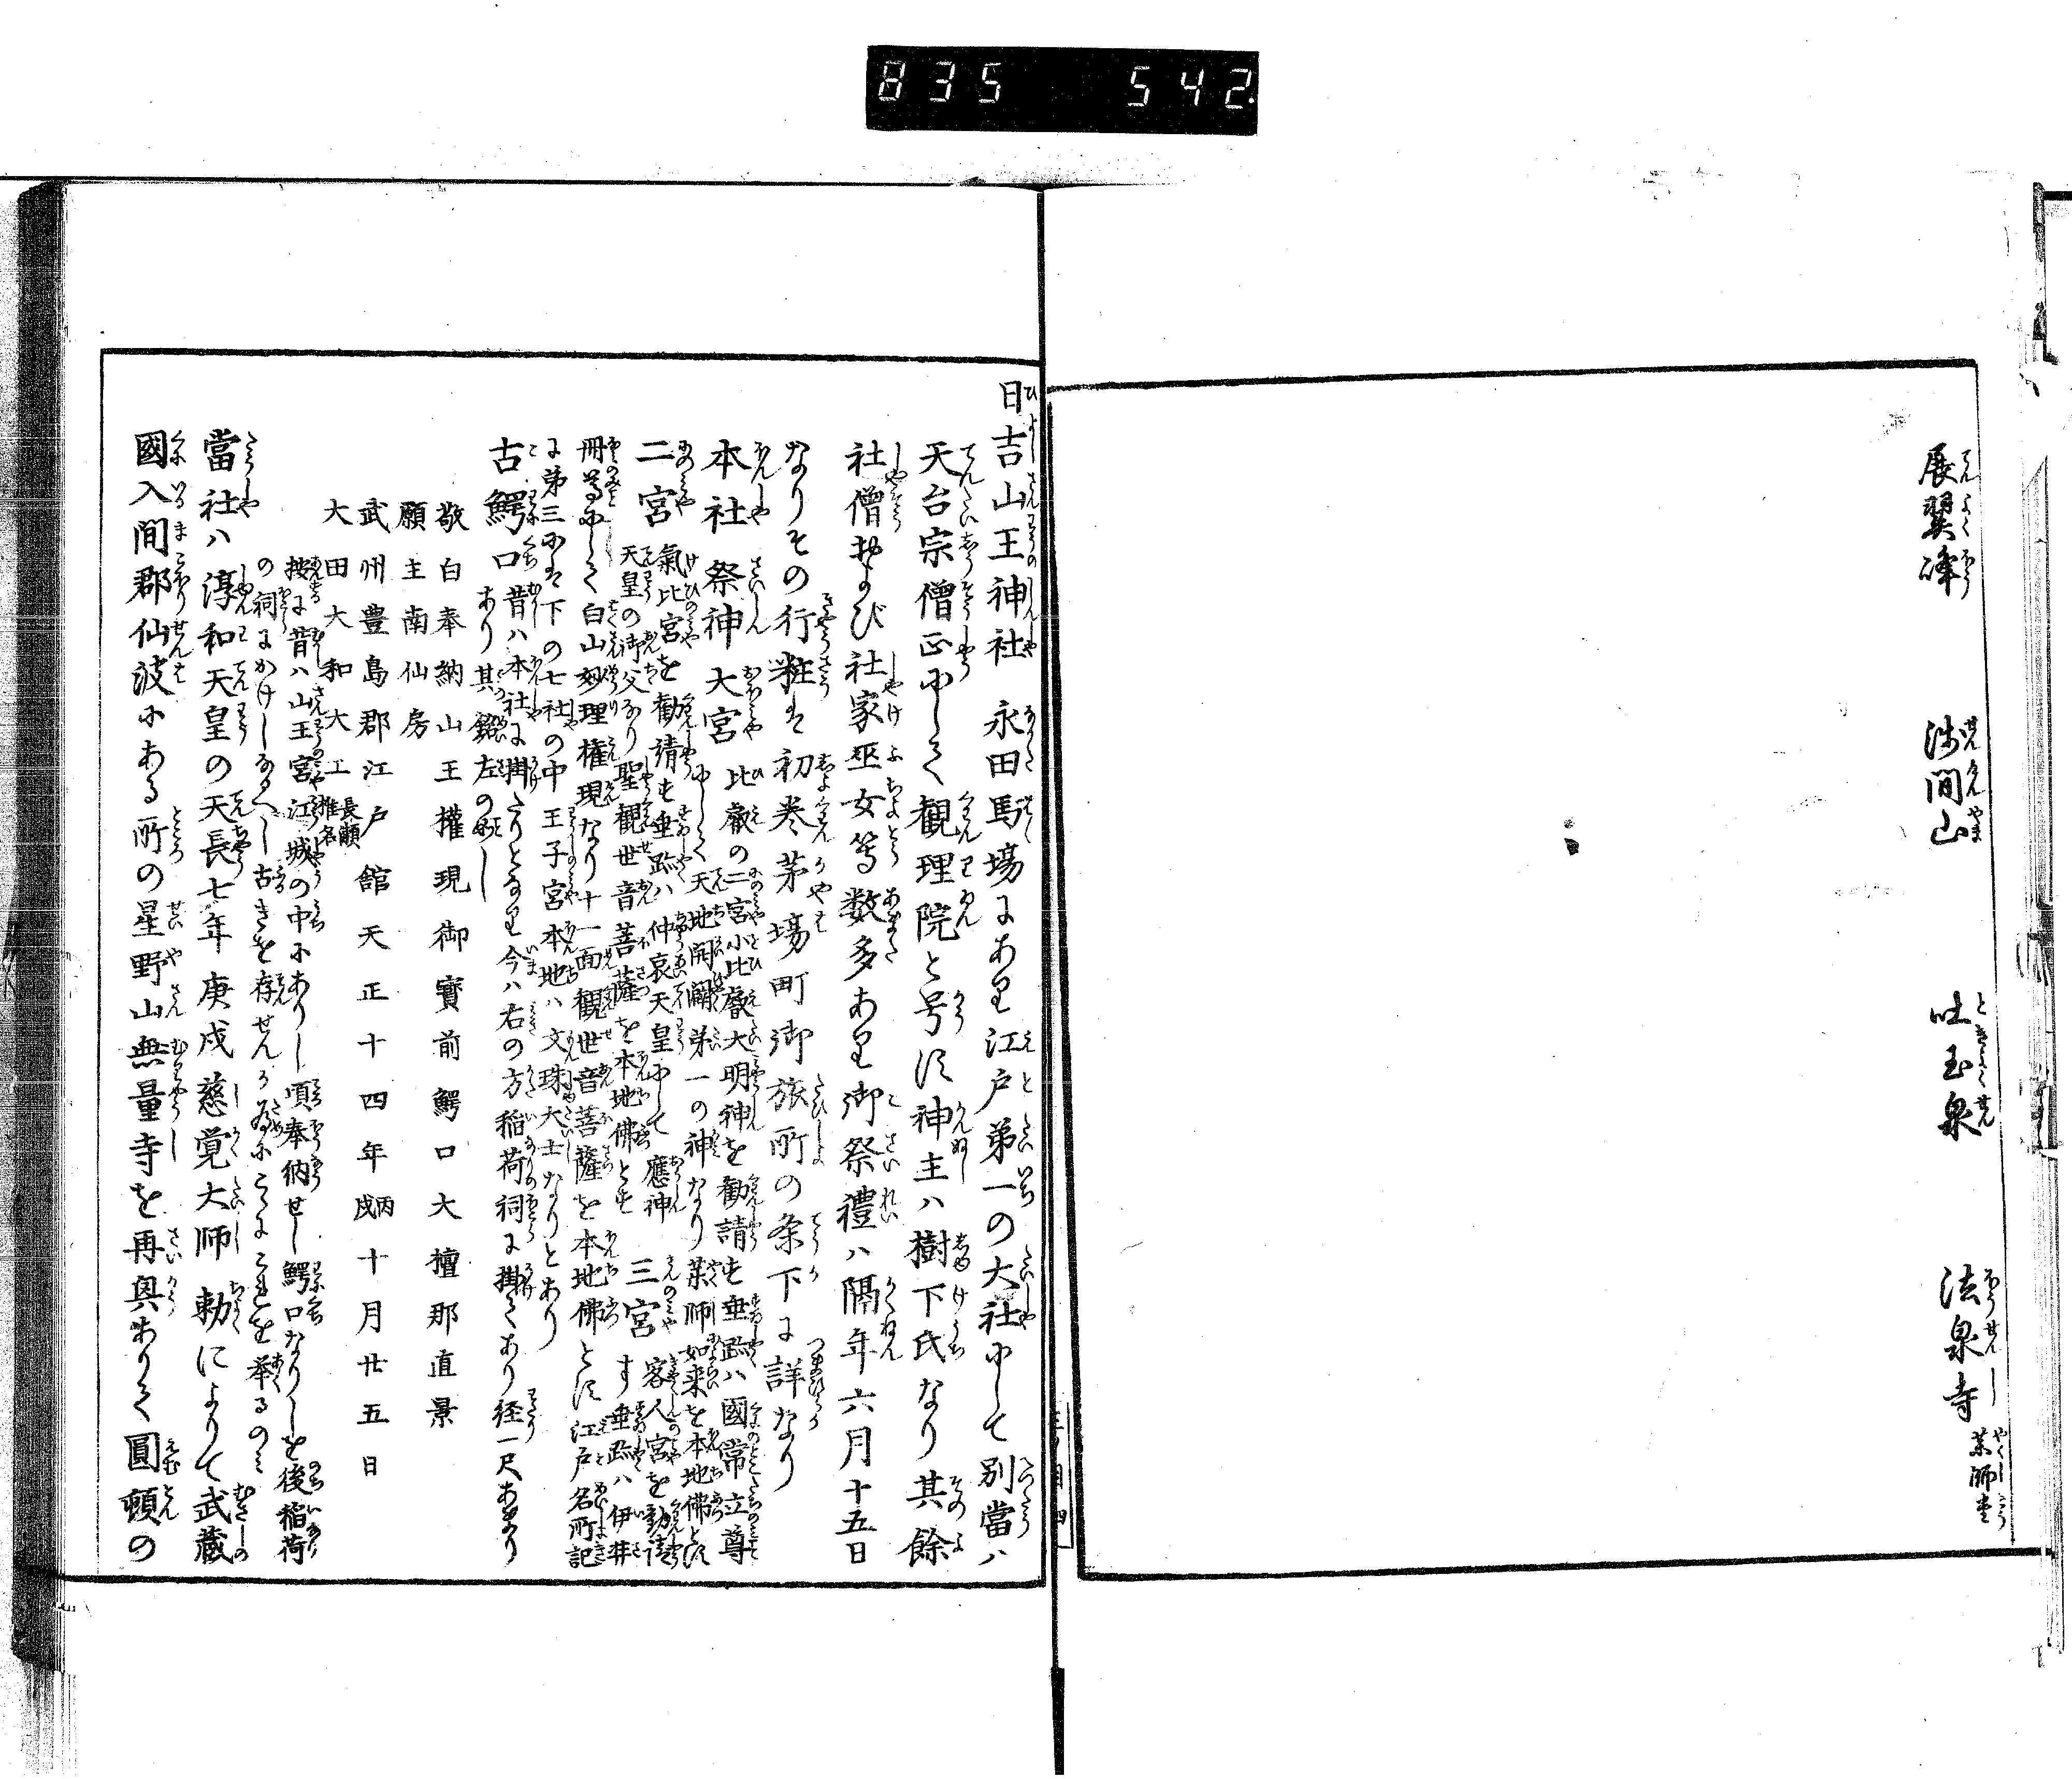 835 542
展翼峰
浅間山
吐玉泉
法泉寺 薬師堂
日吉山王神社 永田馬場にあり江戸第一の大社にして別當ハ
天台宗僧正にして観理院と号す神主ハ樹下氏なり其餘
社僧および社家巫女等数多あり御祭禮ハ隔年六月十五日
なりその行粧は初巻茅場町御旅所の条下に詳なり
本社 祭神 大宮 比叡の二宮小比叡大明神を勧請す垂跡ハ國常立尊
にして天地開闢第一の神なり薬師如来を本地佛とす
二宮 氣比宮を勧請す垂跡ハ仲哀天皇にして應神
天皇の御父なり聖観世音菩薩を本地佛とす
三宮 客人宮を勧請
す垂跡ハ伊弉
冊尊にして白山妙理権現なり十一面観世音菩薩を本地佛とす江戸名所記
に第三には下の七社の中王子宮本地ハ文珠大士なりとあり
古鰐口 昔ハ本社に掛たりとなり今ハ右の方稲荷祠に掛てあり径一尺あまり
あり其銘左の如し
敬白奉納山王權現御寳前鰐口大擅那直景
願主南仙房
武州豊島郡江戸館天正十四年丙戌十月廿五日
大田大和大工 椎名長瀬
按に昔ハ山王宮江城の中にありし頃奉納せし鰐口なりしを後稲荷
の祠にかけしなるへし古きを存せんか為にこゝにこれを挙るのミ
當社ハ淳和天皇の天長七年庚戌慈覚大師勅によりて武蔵
國入間郡仙波にある所の星野山無量寺を再興ありて圓頓の